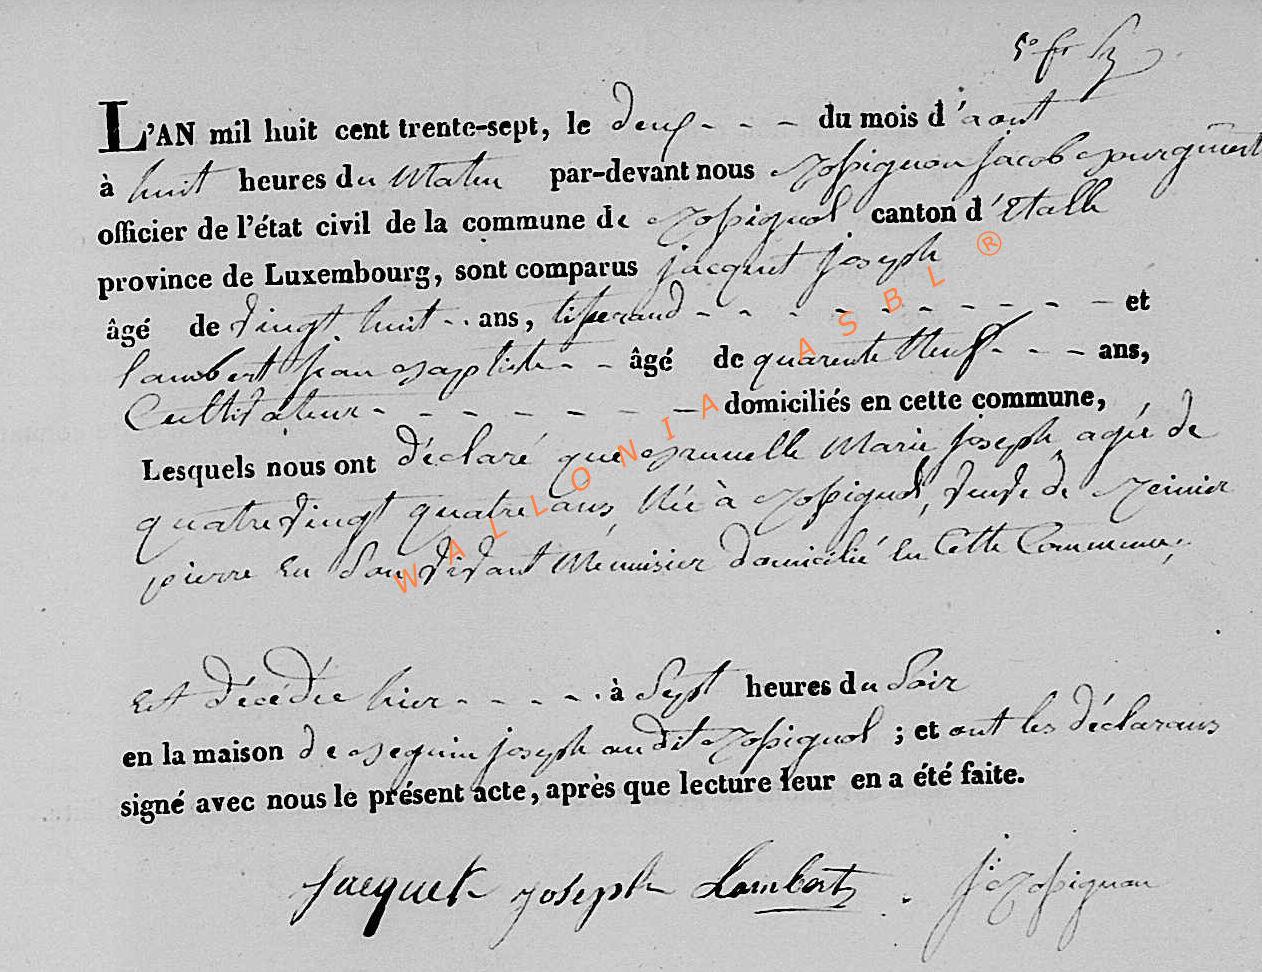 5° fr
L'AN mil huit cent trente-sept, le deux - - - du mois d'aout
à huit heures du Matin par-devant nous Rossignon jacob Bourgmest
officier de l'état civil de la commune de Rossignol canton d'Etalle
province de Luxembourg, sont comparus jacquet joseph
âgé de vingt huit - . ans, tisserand - - - - - - - - - et
lambert jean Baptiste - - âgé de quarente Neuf - - - ans,
Cultivateur - - - - - - - domiciliés en cette commune,
Lesquels nous ont déclaré que Marie joseph agée de
quatre vingt quatre ans, Née à Rossignol, veuve de Reinier
pierre En Son vivant Menuisier domicilié En Cette Commune,
Est décédée hier - - - - . à Sept heures du Soir
en la maison de Seguin joseph audit Rossignol ; et ont les déclarans
signé avec nous le présent acte, après que lecture leur en a été faite.
Jacquet joseph Lambert . j Rossignon
WALLONIA ASBL ®